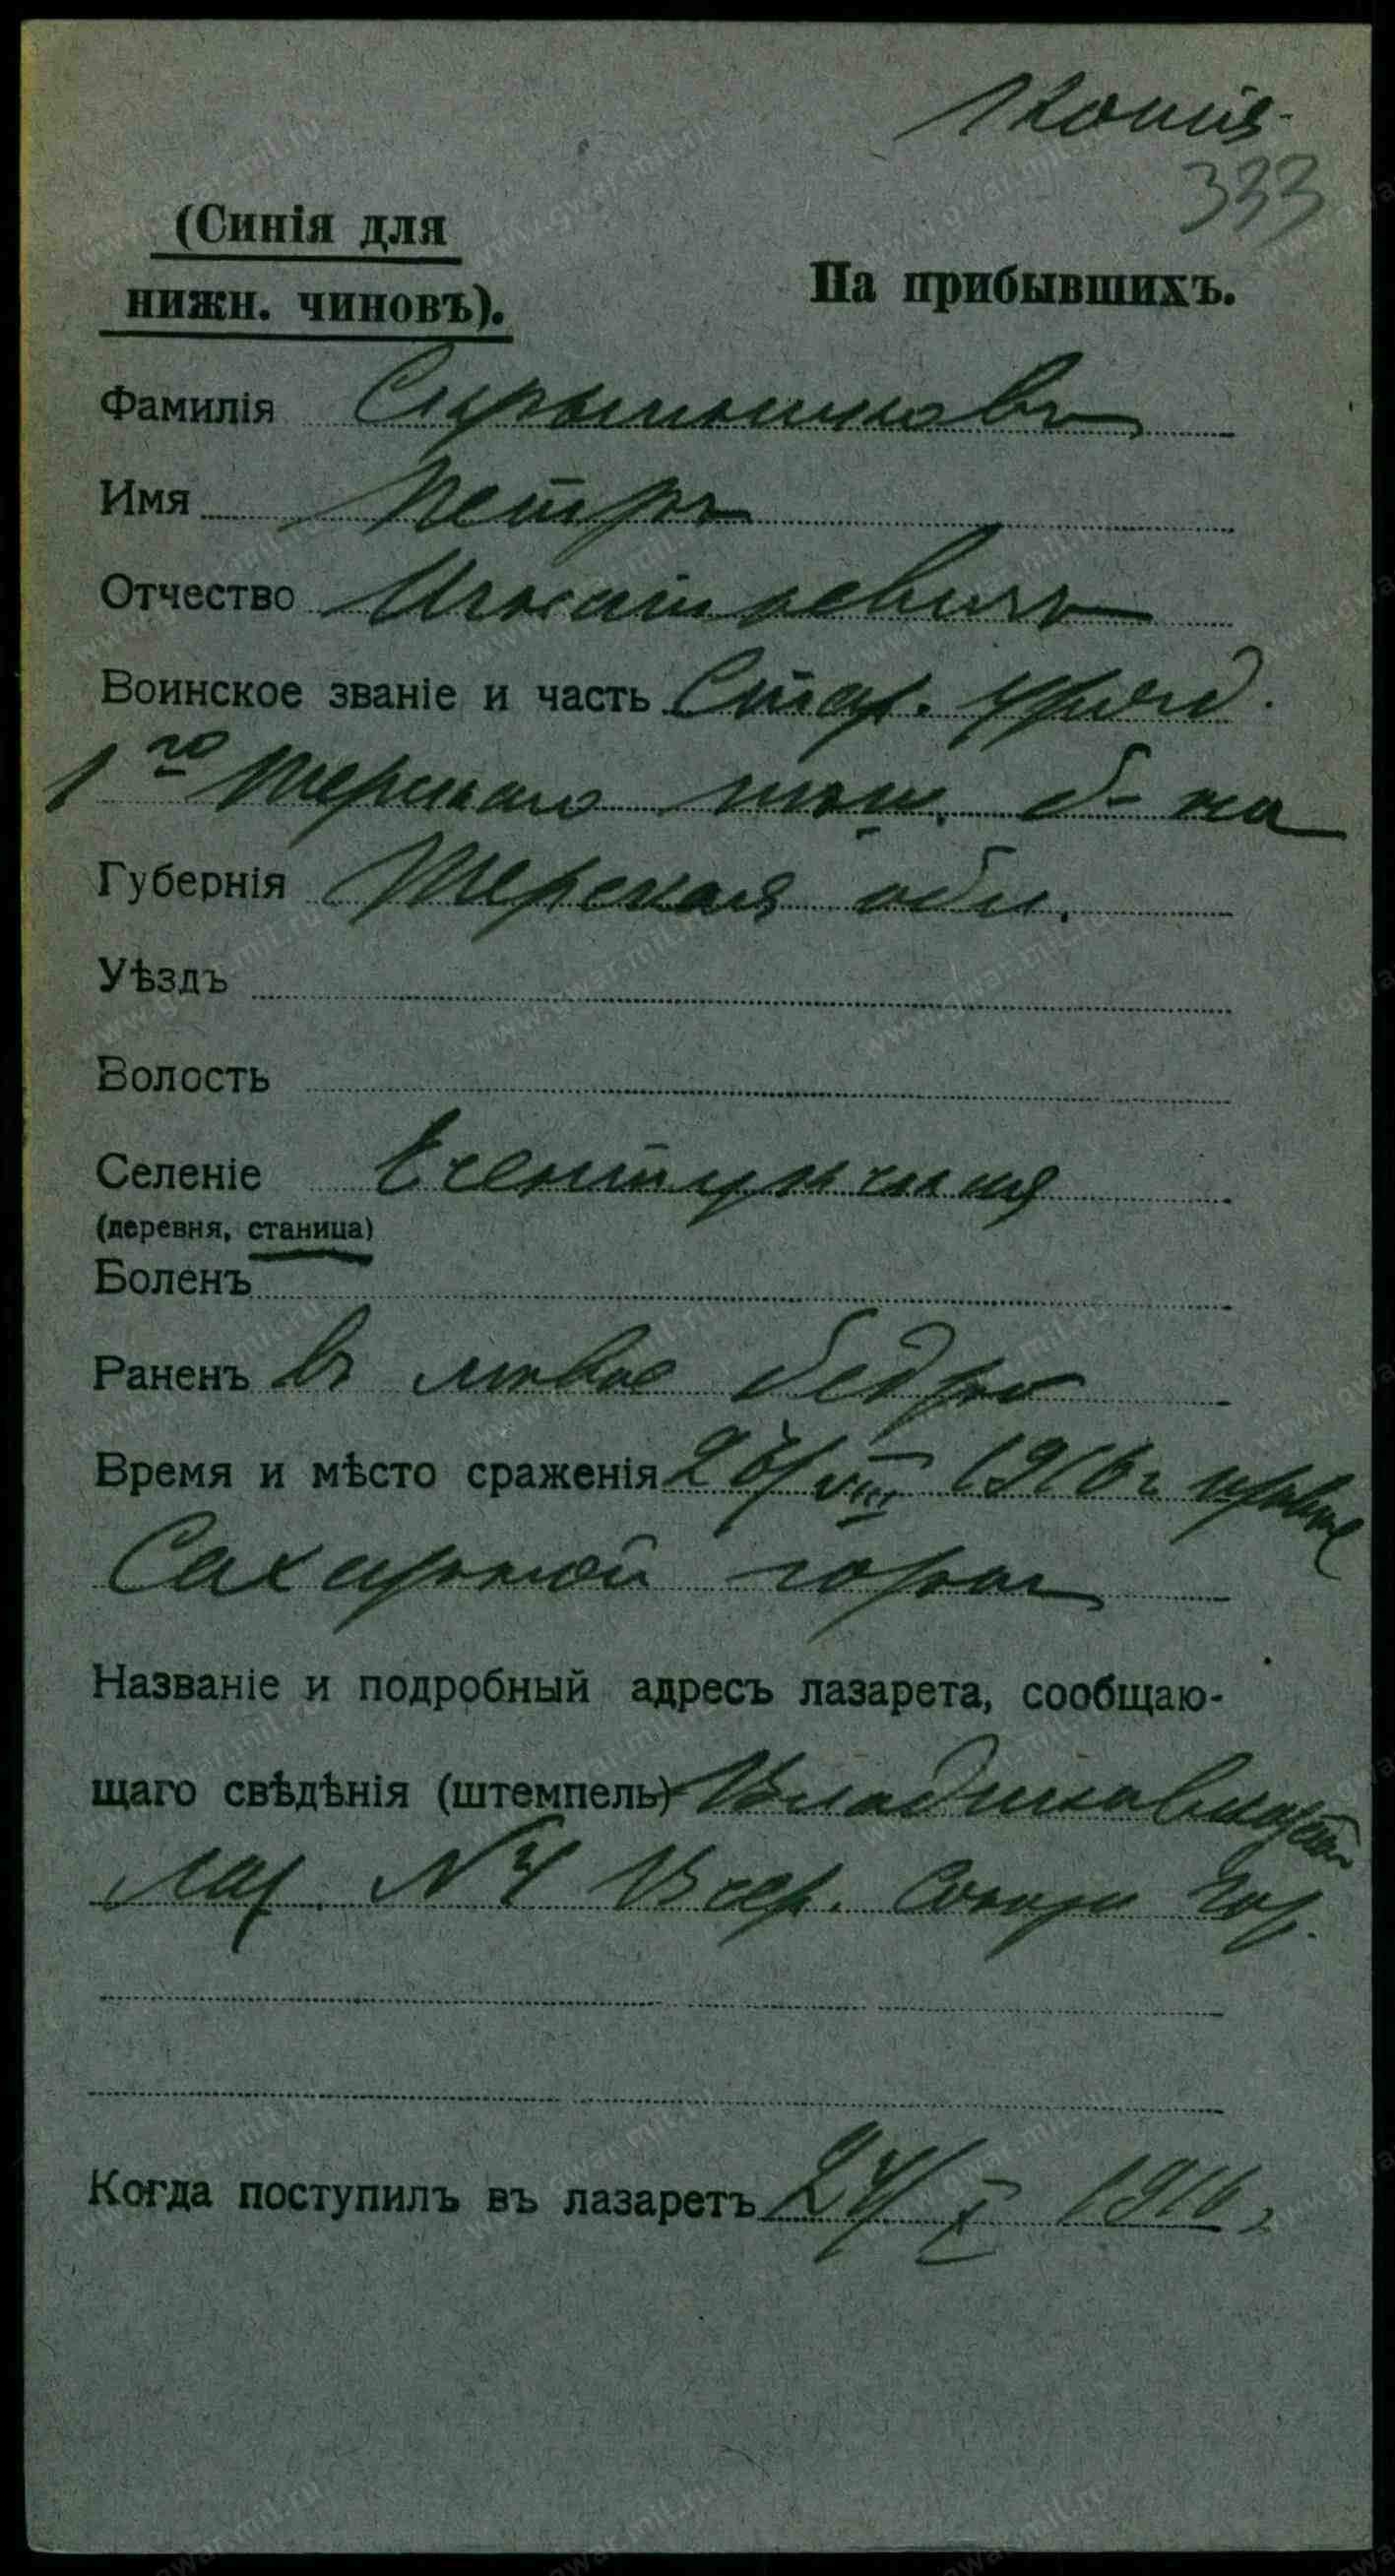 Копія
333
(Синія для
нижн. чиновъ).
На прибывшихъ.
Фамилія
Имя Петръ
Отчество Игнатьевичъ
Воинское званіе и часть Стар. уряд.
1го Терскаго пласт. б-на
Губернія Терская обл.
Уѣздъ
Волость
Селеніе Есентукская
(деревня, станица)
Боленъ
Раненъ въ лѣвое бедро
Время и мѣсто сраженія 26/VIII 1916 г.
Сахарной горы
Названіе и подробный адресъ лазарета, сообщаю-
щаго свѣдѣнія (штемпель) Владикавказ
лаз. №4 Всер. Союза Гор.
Когда поступилъ въ лазаретъ 24/X 1916 г
www.gwar.mil.ru